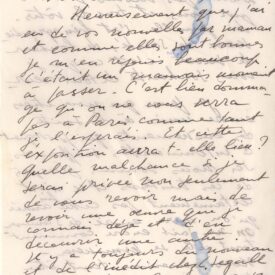 Heureusement que j'ai
eu de vos nouvelles par maman
et comme elles sont bonnes
je m'en réjouis beaucoup
C'était un mauvais moment
à passer. C'est bien domma-
ge qu'on ne vous verra
pas à Paris comme tant
je l'espérais. Et cette
exposition aura-t-elle lieu?
quelle malchance si je
serai privée non seulement
de vous revoir mais de
revoir une œuvre que je
connais déjà et d'en
découvrir une autre
Il y a toujours du nouveau
et de l'inédit chez